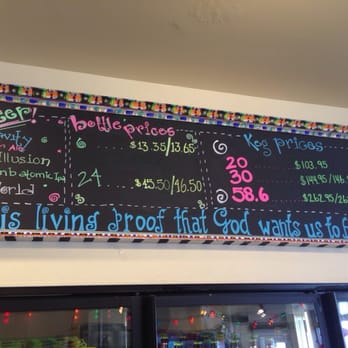 Beer!
Bottle prices
$13.35/13.65
24 $45.50/46.50
Keg prices
20 $103.95
30 $144.95/146.
58.6 $262.95/26
Illusion
World
is living proof that God wants us to